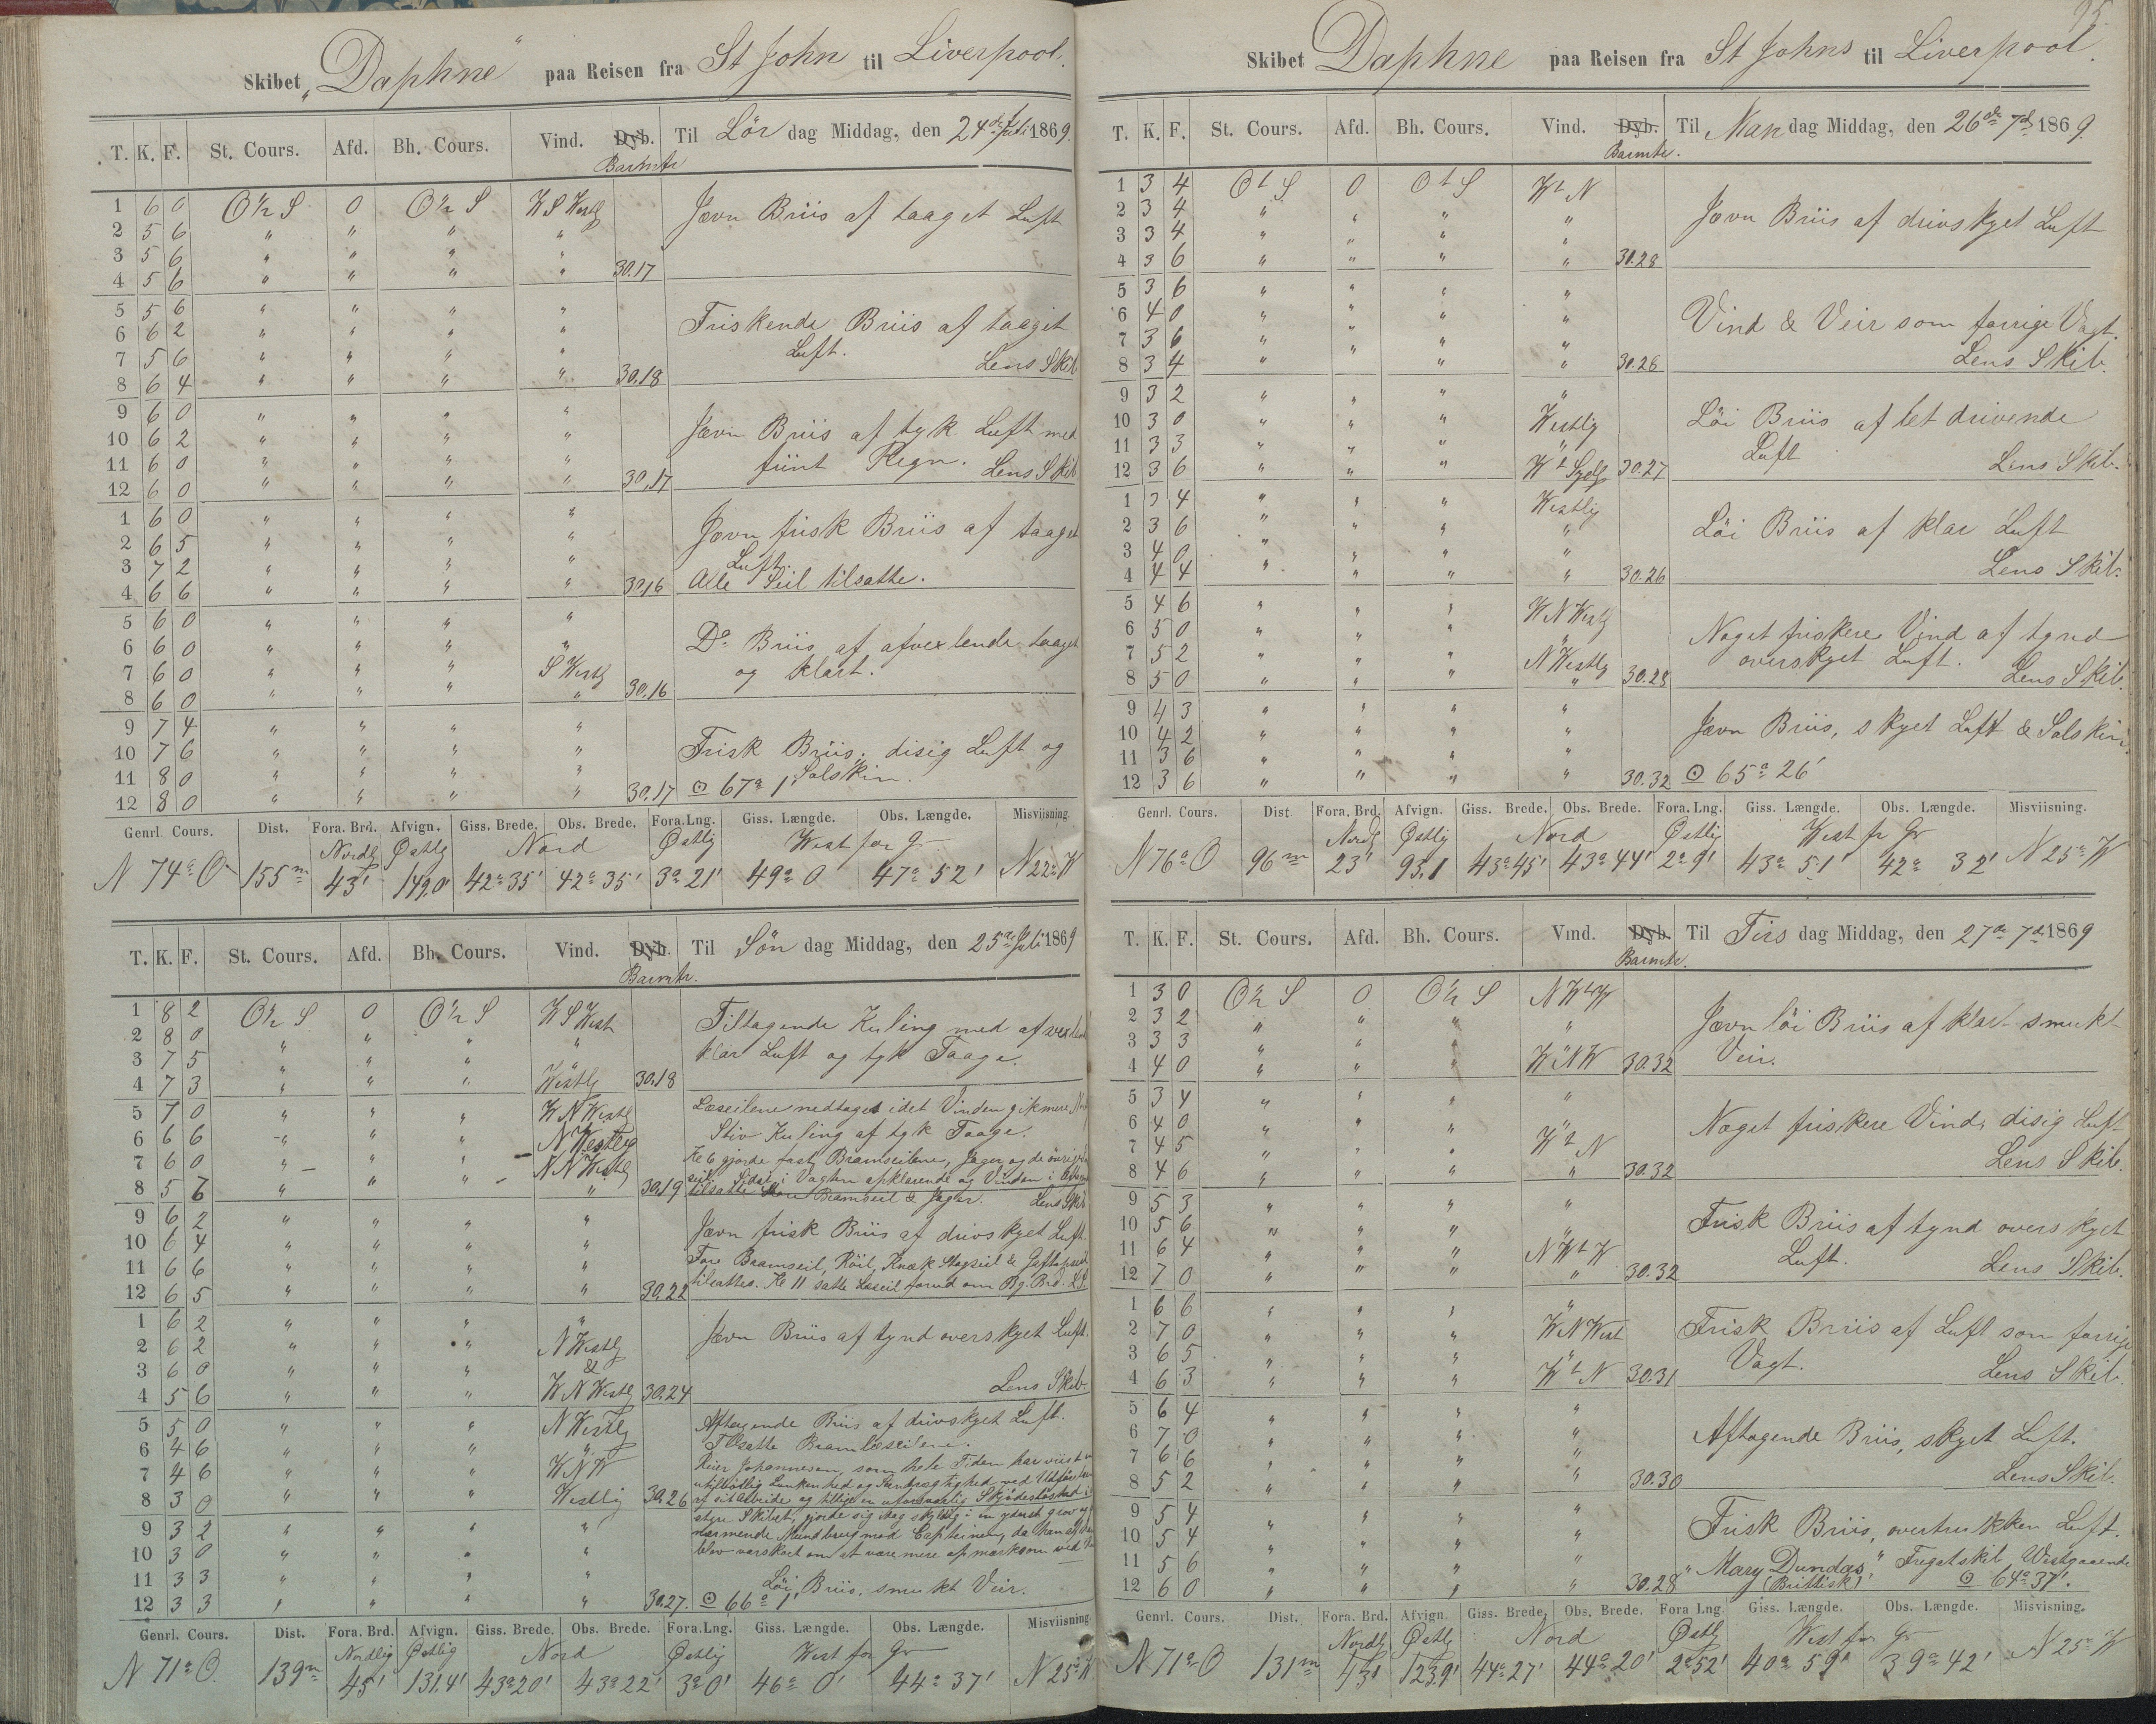 Skibet „Daphne“ paa Reisen fra St John til Liverpool.
T. K. F. St. Cours. Afd. Bh. Cours. Vind. Dyb. Til Lör dag Middag, den 24de Juli 1869.
Barmtr
1 6 0 O½ S 0 O½ S W S Westlg Jævn Briis af taaget Luft
2 5 6 " " " "
3 5 6 " " " "
4 5 6 " " " " 30.17
5 5 6 " " " " Friskende Briis af taaget
6 6 2 " " " " Luft.
7 5 6 " " " " Lens Skib
8 6 4 " " " " 30.18
9 6 0 " " " " Jævn Briis af tyk Luft med
10 6 2 " " " " fiint Regn. Lens Skib
11 6 0 " " " "
12 6 0 " " " " 30.17
1 6 0 " " " " Jævn frisk Briis af taaget
2 6 5 " " " " Luft.
3 7 2 " " " " Alle Seil tilsatte.
4 6 6 " " " " 30.16
5 6 0 " " " " Do Briis af afvexlende taaget
6 6 0 " " " " og klart.
7 6 0 " " " S Westlg
8 6 0 " " " " 30.16
9 7 4 " " " " Frisk Briis, disig Luft og
10 7 6 " " " " Solskin.
11 8 0 " " " "
12 8 0 " " " " 30.17 ⊙ 67° 1'
Genrl. Cours. Dist. Fora. Brd. Afvign. Giss. Brede. Obs. Brede. Fora. Lng. Giss. Længde. Obs. Længde. Misviisning.
Nordlg Østlg Nord Østlig West for Gr
N 74° O 155m 43' 149,0' 42° 35' 42° 35' 3° 21' 49° 0' 47° 52' N 22° W
T. K. F. St. Cours. Afd. Bh. Cours. Vind. Dyb. Til Sön dag Middag, den 25de Juli 1869
Barmtr.
1 8 2 O½ S 0 O½ S W S West Tiltagende Kuling med afvexlende
2 8 0 " " " " klar Luft og tyk Taage.
3 7 5 " " " "
4 7 3 " " " Westlg 30.18
5 7 0 " " " W N Westlg Læseilene nedtaget idet Vinden gik mere
6 6 6 " " " N Westlig Stiv Kuling af tyk Taage.
7 6 0 " " " N N Westlg Kl 6 gjorde fast Bramseilene, Jager og de övrige
seil. Sidst i Vagten opklarende og Vinden i
8 5 6 " " " " 30.19 tilsatte Store Bramseil & Jager. Lens Skib
9 6 2 " " " " Jævn frisk Briis af drivskyet Luft.
10 6 4 " " " " Fore Bramseil, Röil, Knæk Stagseil &
11 6 6 " " " " tilsattes. Kl 11 satte Læseil forud om Bg. Brd. L.S.
12 6 5 " " " " 30.22
1 6 2 " " " " Jævn Briis af tynd overskyet Luft.
2 6 2 " " " N Westlg
3 6 0 " " " &
4 5 6 " " " W N Westlg 30.24 Lens Skib.
5 5 0 " " " N Westlg Aftagende Briis af drivskyet Luft.
6 4 6 " " " " Tilsatte Bramlæseilene.
7 4 6 " " " W N W Johannesen, som hele Tiden har viist
utilbörlig Lunkenhed og ved Udförelsen
8 3 0 " " " Westlig 30.26 af sit Arbeide og tillige en uforsvarlig Skjödeslöshed i
styre Skibet, gjorde sig idag skyldig i en yderst grov og
9 3 2 " " " " Mundbrug mod Capteinen, da han
10 3 0 " " " " blev varskoet om at være mere opmærksom ved
11 3 3 " " " " Löi Briis, smukt Veir.
12 3 3 " " " " 30.27. ⊙ 66° 1'
Genrl. Cours. Dist. Fora. Brd. Afvign. Giss. Brede. Obs. Brede. Fora. Lng. Giss. Længde. Obs. Længde. Misviisning.
Nordlig Østlig Nord Østlig West for Gr
N 71° O. 139m 45' 131,4' 43° 20' 43° 22' 3° 0' 46° 0' 44° 37' N 25° W
95.
Skibet Daphne paa Reisen fra St Johns til Liverpool.
T. K. F. St. Cours. Afd. Bh. Cours. Vind. Dyb. Til Man dag Middag, den 26de 7de 1869.
Barmtr.
1 3 4 O t S 0 O t S W t N Jævn Briis af drivskyet Luft
2 3 4 " " " "
3 3 4 " " " "
4 3 6 " " " " 30.28
5 3 6 " " " " Vind & Veir som forrige Vagt.
6 4 0 " " " "
7 3 6 " " " " Lens Skib.
8 3 4 " " " " 30.26
9 3 2 " " " " Löi Briis af let drivende
10 3 0 " " " Westlig Luft
11 3 3 " " " " Lens Skib.
12 3 6 " " " W t Sydlg 30.27
1 3 4 " " " Westlig Löi Briis af klar Luft
2 3 6 " " " "
3 4 0 " " " " Lens Skib.
4 4 4 " " " " 30.26
5 4 6 " " " W N Westlg Noget friskere Vind af tynd
6 5 0 " " " " overskyet Luft.
7 5 2 " " " N Westlg Lens Skib.
8 5 0 " " " " 30.28
9 4 3 " " " " Jævn Briis, skyet Luft & Solskin.
10 4 2 " " " "
11 3 6 " " " "
12 3 6 " " " " 30.32 ⊙ 65° 26'
Genrl. Cours. Dist Fora. Brd. Afvign. Giss. Brede. Obs. Brede. Fora. Lng. Giss. Længde. Obs. Længde. Misviisning.
Nordlg Østlig Nord Østlig West fr Gr
N 76° O 96m 23' 93,1 43° 45' 43° 44' 2° 9' 43° 51' 42° 32' N 25° W
T. K. F. St. Cours. Afd. Bh. Cours. Vind. Dyb. Til Tirs dag Middag, den 27de 7de 1869
Barmtr.
1 3 0 O½ S 0 O½ S N W t W Jævn löi Briis af klart smukt
2 3 2 " " " " Veir.
3 3 3 " " " "
4 4 0 " " " W N W 30.32
5 3 4 " " " " Noget friskere Vind, disig Luft
6 4 0 " " " "
7 4 5 " " " W t N Lens Skib.
8 4 6 " " " " 30.32
9 5 3 " " " " Frisk Briis af tynd overskyet
10 5 6 " " " " Luft.
11 6 4 " " " N W t W Lens Skib.
12 7 0 " " " " 30.32
1 6 6 " " " " Frisk Briis af Luft som forrige
2 7 0 " " " W N West Vagt.
3 6 5 " " " " Lens Skib.
4 6 3 " " " W t N 30.31
5 6 4 " " " " Aftagende Briis, skyet Luft.
6 7 0 " " " "
7 6 6 " " " " Lens Skib.
8 5 2 " " " " 30.30
9 5 4 " " " " Frisk Briis, overtrukken Luft.
10 5 4 " " " "
11 5 6 " " " " „Mary Dundas,“ Fregatskib Westgaaende
12 6 0 " " " " 30.28 (Brittisk) ⊙ 64° 37'.
Genrl. Cours. Dist. Fora. Brd. Afvign. Giss. Brede. Obs. Brede. Fora Lng. Giss. Længde. Obs. Længde. Misvisning.
Nordlg Østlg Nord Østlg West for Gr
N 71° O 131m 43' 123,9' 44° 27' 44° 20' 2° 52' 40° 59' 39° 42' N 25° W